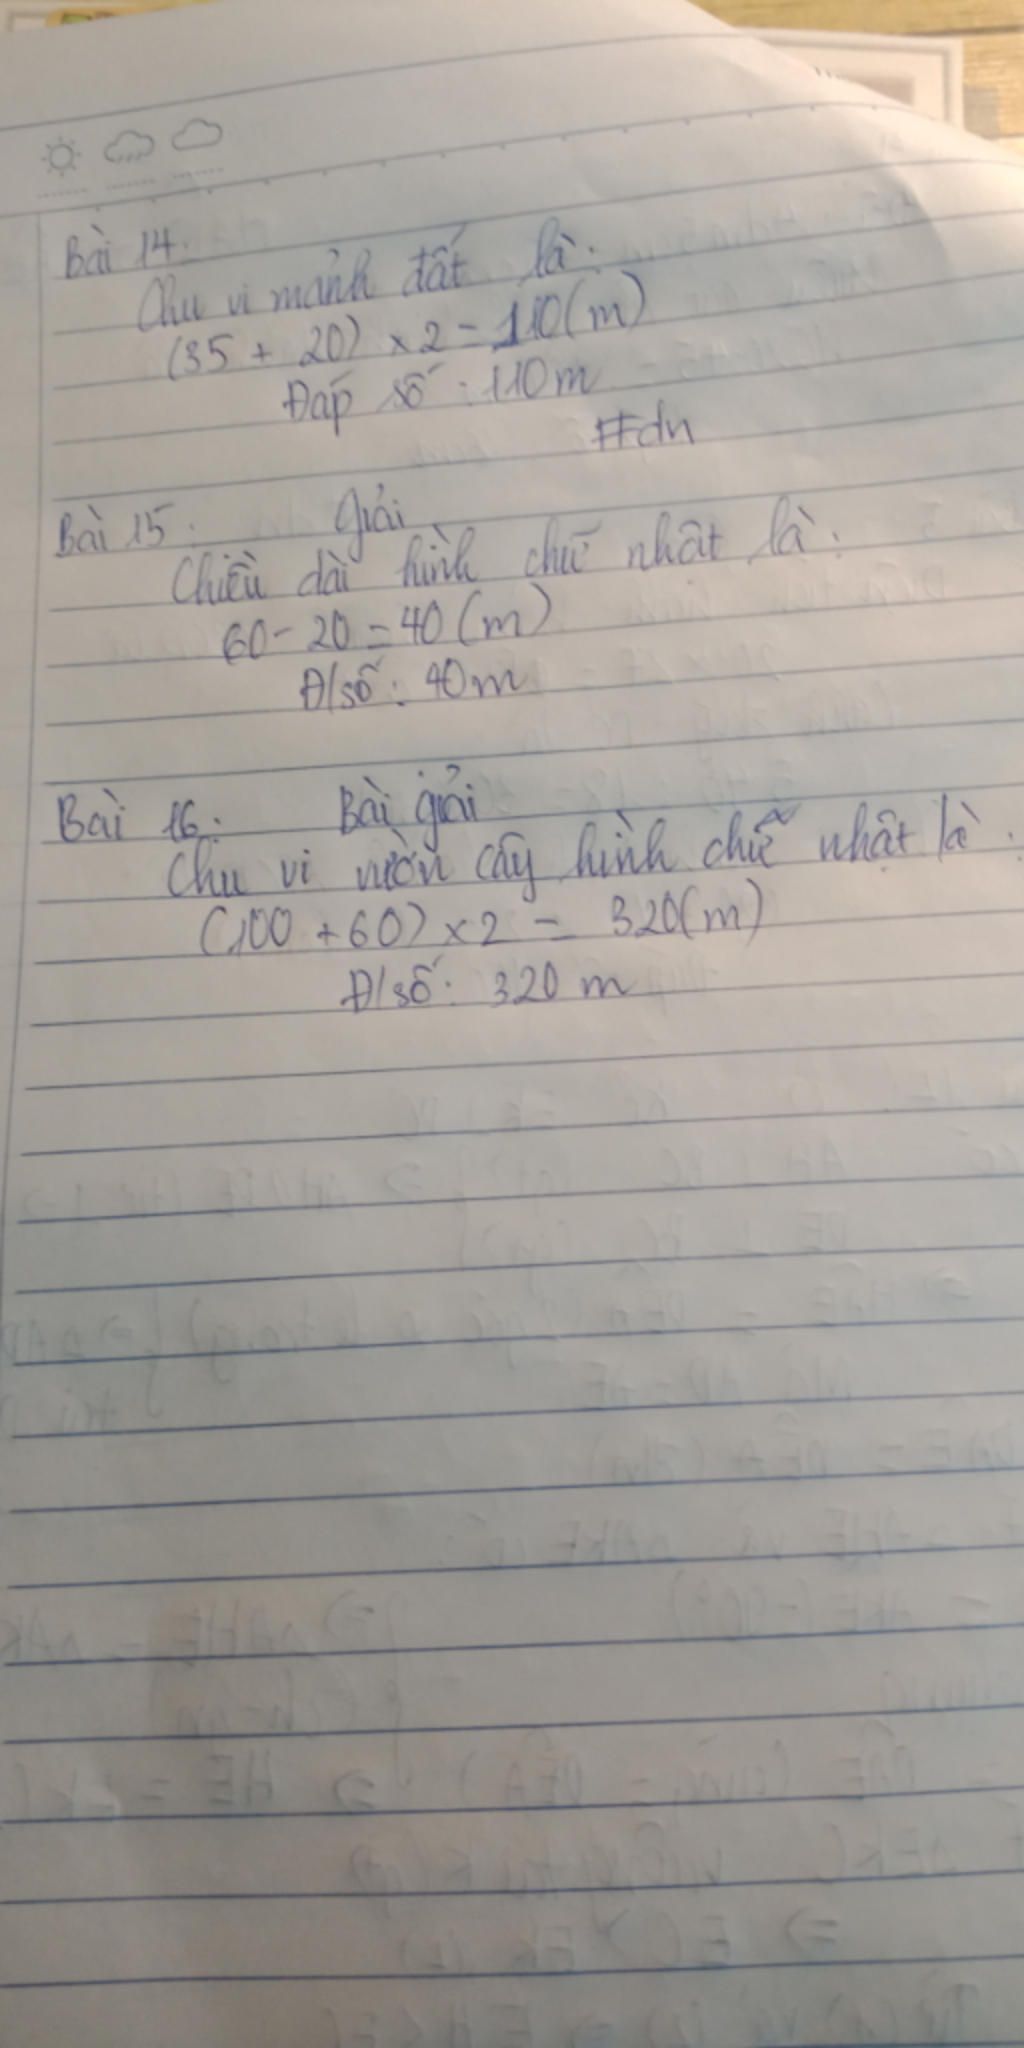 Bài 14.
Chu vi mảnh đất là:
(35 + 20) × 2 = 110(m)
Đáp số: 110m
#dn
Bài 15. Giải
Chiều dài hình chữ nhật là:
60 - 20 = 40 (m)
Đ/số: 40m
Bài 16: Bài giải
Chu vi vườn cây hình chữ nhật là:
(100 + 60) × 2 = 320(m)
Đ/số: 320 m